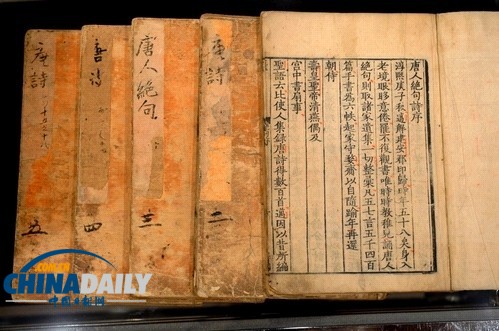 唐人絕句詩序
淳熙庚子秋邁解建安郡印歸時年五十八矣身入
老境眵意倦罷不復觀書唯時時教稚兒誦唐人
絕句則取諸家遺集一切整彙凡五七言五千四百
篇手書為六帙起家守婺齎以自隨踰年再還
朝侍
壽皇聖帝清燕偶及
宮中書扇事
聖語云比使人集錄唐詩得數百首邁因以昔所編
唐詩
二
唐人絕句
三
唐詩
四
唐詩
五
CHINADAILY
中国日报网